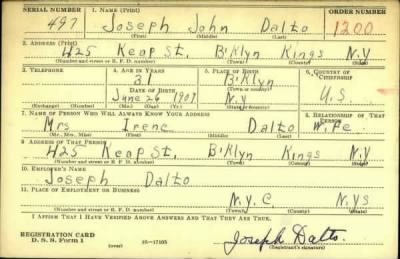 SERIAL NUMBER 1. NAME (Print) ORDER NUMBER
497 Joseph John Dalto 1200
(First) (Middle) (Last)
2. ADDRESS (Print)
425 Keap St. B'Klyn Kings N.Y
(Number and street or R. F. D. number) (Town) (County) (State)
3. TELEPHONE 4. AGE IN YEARS 5. PLACE OF BIRTH 6. COUNTRY OF CITIZENSHIP
31 B'Klyn
DATE OF BIRTH (Town or county)
June 26 1909 N.Y U.S.
(Exchange) (Number) (Mo.) (Day) (Yr.) (State or country)
7. NAME OF PERSON WHO WILL ALWAYS KNOW YOUR ADDRESS 8. RELATIONSHIP OF THAT PERSON
Mrs Irene Dalto Wife
(Mr., Mrs., Miss) (First) (Middle) (Last)
9. ADDRESS OF THAT PERSON
425 Keap St. B'Klyn Kings N.Y
(Number and street or R. F. D. number) (Town) (County) (State)
10. EMPLOYER'S NAME
Joseph Dalto
11. PLACE OF EMPLOYMENT OR BUSINESS
N.Y.C. N.Y.S
(Number and street or R. F. D. number) (Town) (County) (State)
I AFFIRM THAT I HAVE VERIFIED ABOVE ANSWERS AND THAT THEY ARE TRUE.
REGISTRATION CARD
D. S. S. FORM 1 (over) 16—17105 Joseph Dalto.
(Registrant's signature)